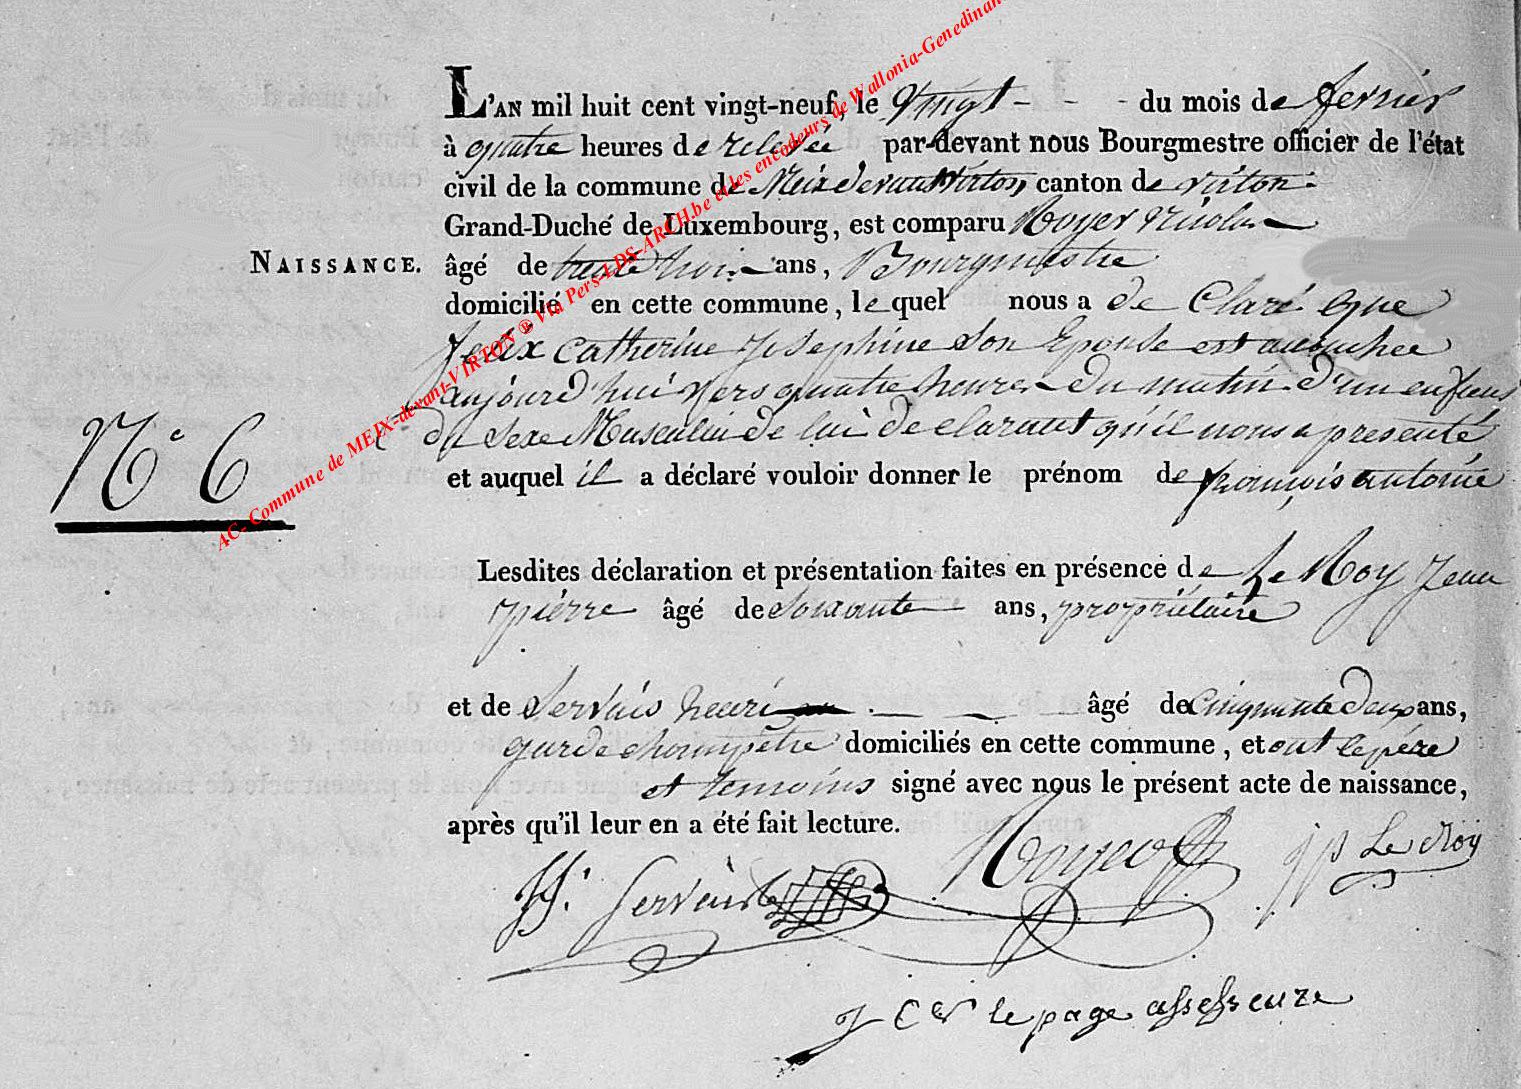 L'AN mil huit cent vingt-neuf, le Vingt - - - du mois de fevrier
à quatre heures de relevée par-devant nous Bourgmestre officier de l'état
civil de la commune de Meix devant Virton canton de virton
Grand-Duché de Luxembourg, est comparu Royer Nicolas
NAISSANCE. âgé de trente trois ans, Bourgmestre
domicilié en cette commune, lequel nous a de Claré que
Catherine Josephine Son Epouse est accouchee
aujourd'hui vers quatre heures du matin d'un enfant
N° 6 du Sexe Masculin de lui de clarant qu'il nous a presenté
et auquel il a déclaré vouloir donner le prénom de françois antoine
Lesdites déclaration et présentation faites en présence de Le Roy Jean
pierre âgé de Soixante ans, propriétaire
et de Servais henri âgé de Cinquante deux ans,
garde champêtre domiciliés en cette commune, et ont le père
et temoins signé avec nous le présent acte de naissance,
après qu'il leur en a été fait lecture.
H. Servais Royer jp Le Roy
le page assesseure
AC- Commune de MEIX-devant-VIRTON ® Via Pers-LDS-ARCH.be et les encodeurs de Wallonia-Genedinan